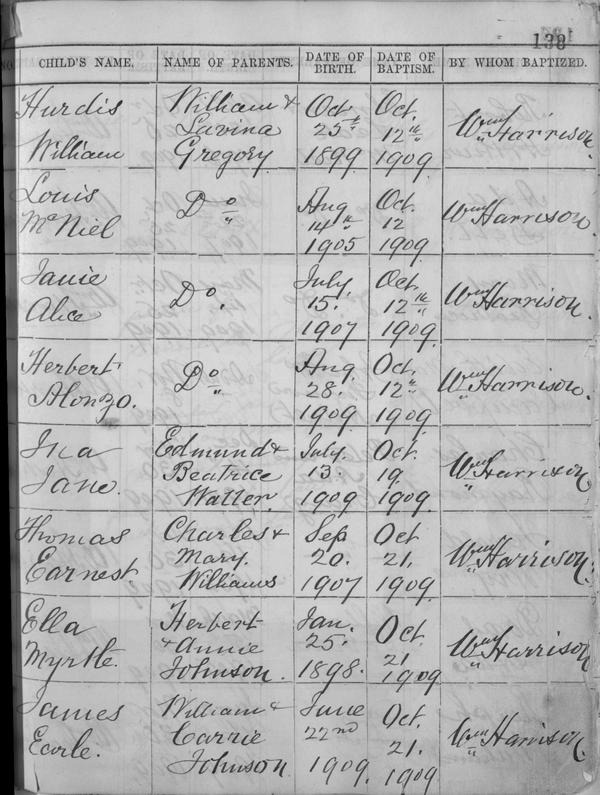 138
NO. CHILD'S NAME. NAME OF PARENTS. DATE OF BIRTH. DATE OF BAPTISM. BY WHOM BAPTIZED.
Hurdis William & Oct. Oct.
Lavina 25th 12th Wm Harrison.
William Gregory 1899 1909
Louis Aug Oct.
McNiel Do 14th 12 Wm Harrison.
1905 1909
Janie July Oct.
Alice Do 15. 12th Wm Harrison.
1907 1909.
Herbert Aug. Oct.
Alonzo. Do 28. 12th Wm Harrison.
1909 1909.
Ina Edmund & July. Oct.
Jane. Beatrice 13. 19. Wm Harrison
Walter. 1909 1909.
Thomas Charles & Sep Oct
Earnest. Mary. 20. 21. Wm Harrison.
Williams 1907 1909.
Ella Herbert Jan. Oct.
Myrtle. & Annie 25. 21 Wm Harrison
Johnson. 1898. 1909
James William & June Oct.
Earle. Carrie 22nd 21. Wm Harrison.
Johnson 1909. 1909